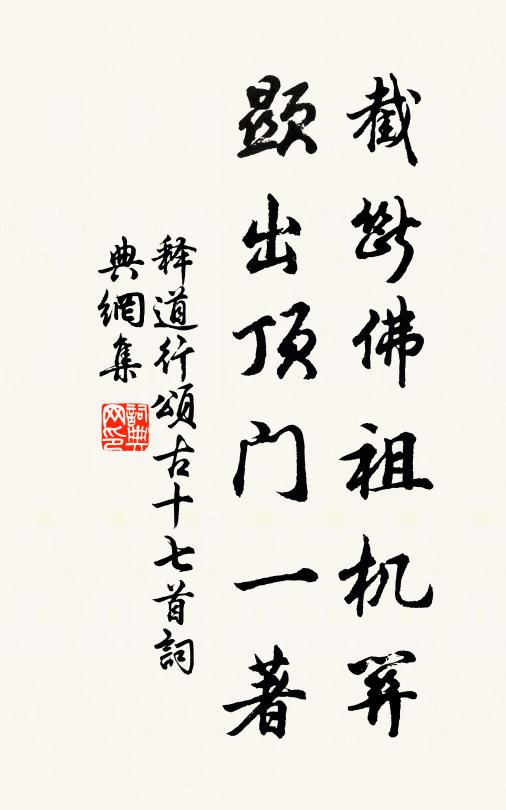 截断佛祖机关
顕出顶门一著
释道行頌古十七首詞
典網集
詞典網印